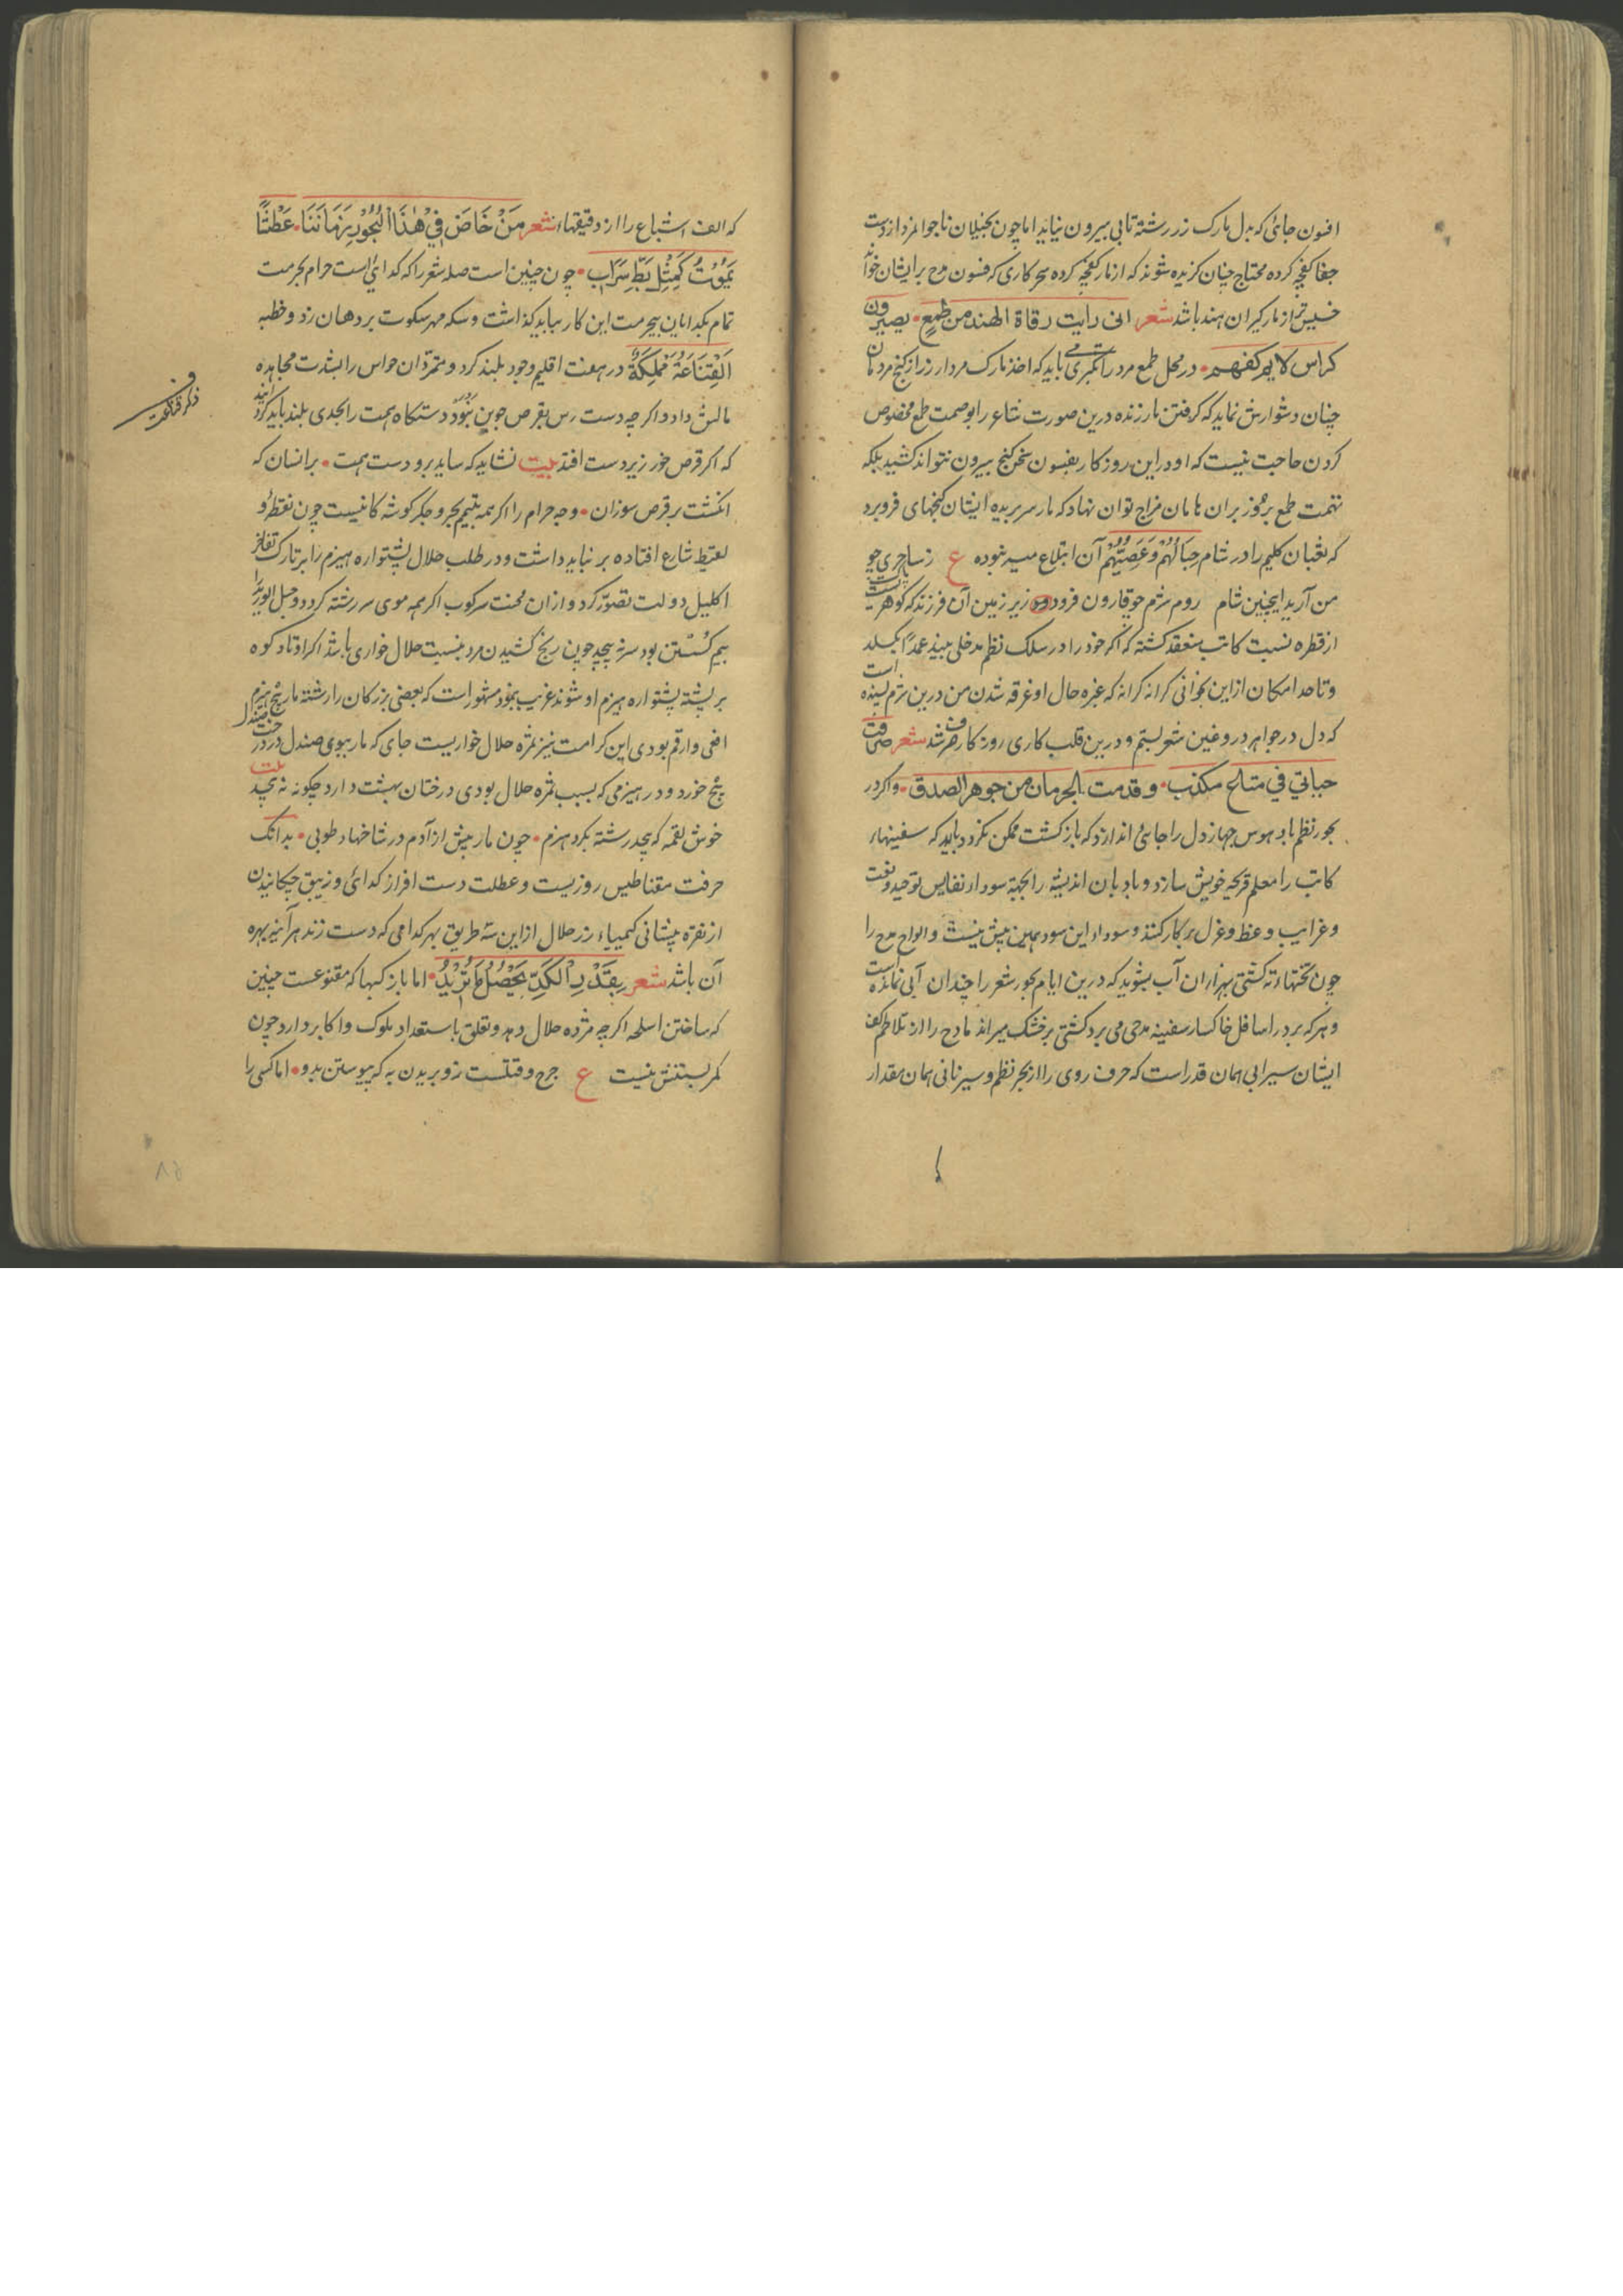 افسون جائی که بدل نارک زر رشته تابی بیرون نیاید اما چون بخیلان ناجوانمرد از دست
جفا کفچه کرده محتاج چنان کزیده شوند که از مار کفچه کرده سحر کاری که فسون مدح بر ایشان خواند
خسیس‌تر از مارکیران هند باشد شعر انی رایت رقاة الهند من طمع • یصیرون
کراس لا یرکفهم • در محل طمع مرد را می باید که اخذ نارک مردار زر از کنج مردمان
چنان دشوارش نماید که کرفتن مار زنده درین صورت شاعر را بوصمت طمع مخصوص
کردن حاجت نیست که او در این روزکار بفسون سخن کنج بیرون نتواند کشید بلکه
تهمت طمع بر هامان مزاج توان نهاد که مار سر بریده ایشان کنجهای فرو برد
که ثعبان کلیم را در شام حِبَالُهُمْ وَعَصِيُّهُمْ آن ابتلاع میسر نبوده ع ز ساحری چو
من آرید اینچنین شام روم سزم چو قارون فرو زیر زمین آن فرزند که کوهریست
از قطره نسبت کاتب منعقد کشته که اکر خود را در سلک نظم مدخلی بیند عمدا بکسلد
و تا حد امکان ازاین بحر کرانه کرانه که غره حال او غرقه شدن من درین سزم بسنده است
که دل در جواهر دروغین شعر بستم و درین قلب کاری روزکار صرف شد شعر صرفت
حیاتي في متاع مکذب • وقدمت بالحرمان من جوهر الصدق • واکر در
بحور نظم باد هوس جهاز دل را جائی اندازد که بازکشت ممکن نکردد باید که سفینهاء
کاتب را معلم قریحه خویش سازد و بادبان اندیشه را بجهة سودا نفایس توحید و نعت
و غرایب وعظ و غزل بر کار کند و سوداء این سود همین پیش نیست و الواح مدح را
چون تختهاء ته کشتی بهزاران آب بشوید که درین ایام بحور شعر را چندان آبی نمانده است
و هرکه بر در اسافل خاکسار سفینه مدحی می برد کشتی بر خشک میراند مادح را از تلاطم کف
ایشان سیرابی همان قدر است که حرف روی را از بحر نظم و سیر نانی همان مقدار
که الف اشباع را از دقیقهاء شعر مَنْ خَاضَ فِيْ هٰذَا الْبُحُوْرِ زَمَانَنَا • عَطْشًا
يَمُوْتُ كَمِثْلِ بَطِّ سَرَابٍ • چون چنین است صله شعر را که کدائی است حرام بحرمت
تمام بکدایان بیحرمت این کار بباید کذاشت و سکه مهر سکوت بر دهان زد و خطبه
اَلْقَنَاعَةُ مَمْلِكَةٌ در هفت اقلیم وجود بلند کرد و متمردان حواس را بشدت مجاهده
مالش داد و اکرچه دست رس بقرص جوین نَبُوَدْ دستکاه همت را بحدی بلند باید کردانید
که اکر قرص خور زیر دست افتد بیت نشاید که ساید برو دست همت • بر انسان که
انکشت بر قرص سوزان • وجه حرام را اکر همه یتیم بحر و جکر کوشه کانیست چون نقطه و
لقیط شارع افتاده بر نباید داشت و در طلب حلال پشتواره هیزم را بر تارک تفاخر
اکلیل دولت تصور کرد و از ان محنت سرکوب اکر همه موی سر رشته کردد و حبل الورید را
بیم کسستن بود سر نه پیچد چون رنج کشیدن مرد بنسبت حلال خواری باشد اکر اوتاد کوه
بر پشته پشتواره هیزم او شوند غریب نبود مشهور است که بعضی بزرکان را رشته مار پیچ هیزم
افعی و ارقم بودی این کرامت نیز ثمره حلال خواریست جای که مار ببوی صندل در درخت صندل
پیچ خورد و در هیزمی که بسبب ثمره حلال بودی درختان بهشت دارد چکونه نه پیچد بیت
خوش لقمه که پیچد رشته بکرد هیزم • چون مار پیش از آدم در شاخهاء طوبی • بدانک
حرفت مقناطیس روزیست و عطلت دست افراز کدائی و زیبق چکانیدن
از نقره پیشانی کیمیاء زر حلال از این سه طریق بهر کدامی که دست زند هر آینه بهره
آن باشد شعر بِقَدْرِ الْكَدِّ يَحْصُلُ مَا تُرِيْدُ • اما باز کبها که متنوعست چنین
که ساختن اسلحه اکرچه مژده حلال دهد و تعلق باستعداد ملوک و اکابر دارد چون
کمر بستنش نیست ع جرح و قتلست زو بریدن به که پیوستن بدو • اما کسی را
ذکر قناعت